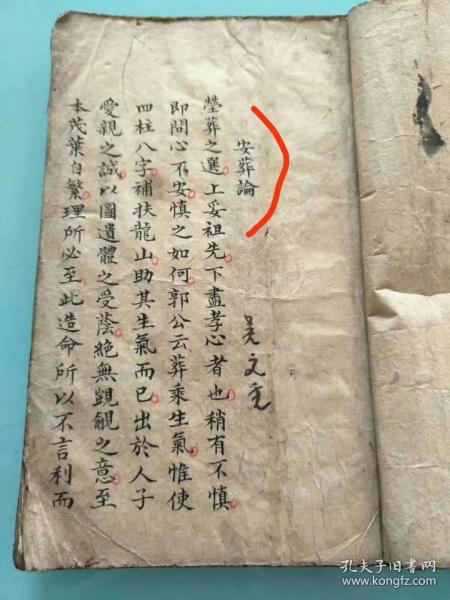 安葬論
吴文
塋葬之選上妥祖先下盡孝心者也稍有不慎
即問心不安慎之如何郭公云葬乘生氣惟使
四柱八字補扶龍山助其生氣而已出於人子
愛親之誠以圖遺體之受蔭絕無覬覦之意至
本茂葉自繁理所必至此造命所以不言利而
孔夫子旧书网
www.kongfz.com